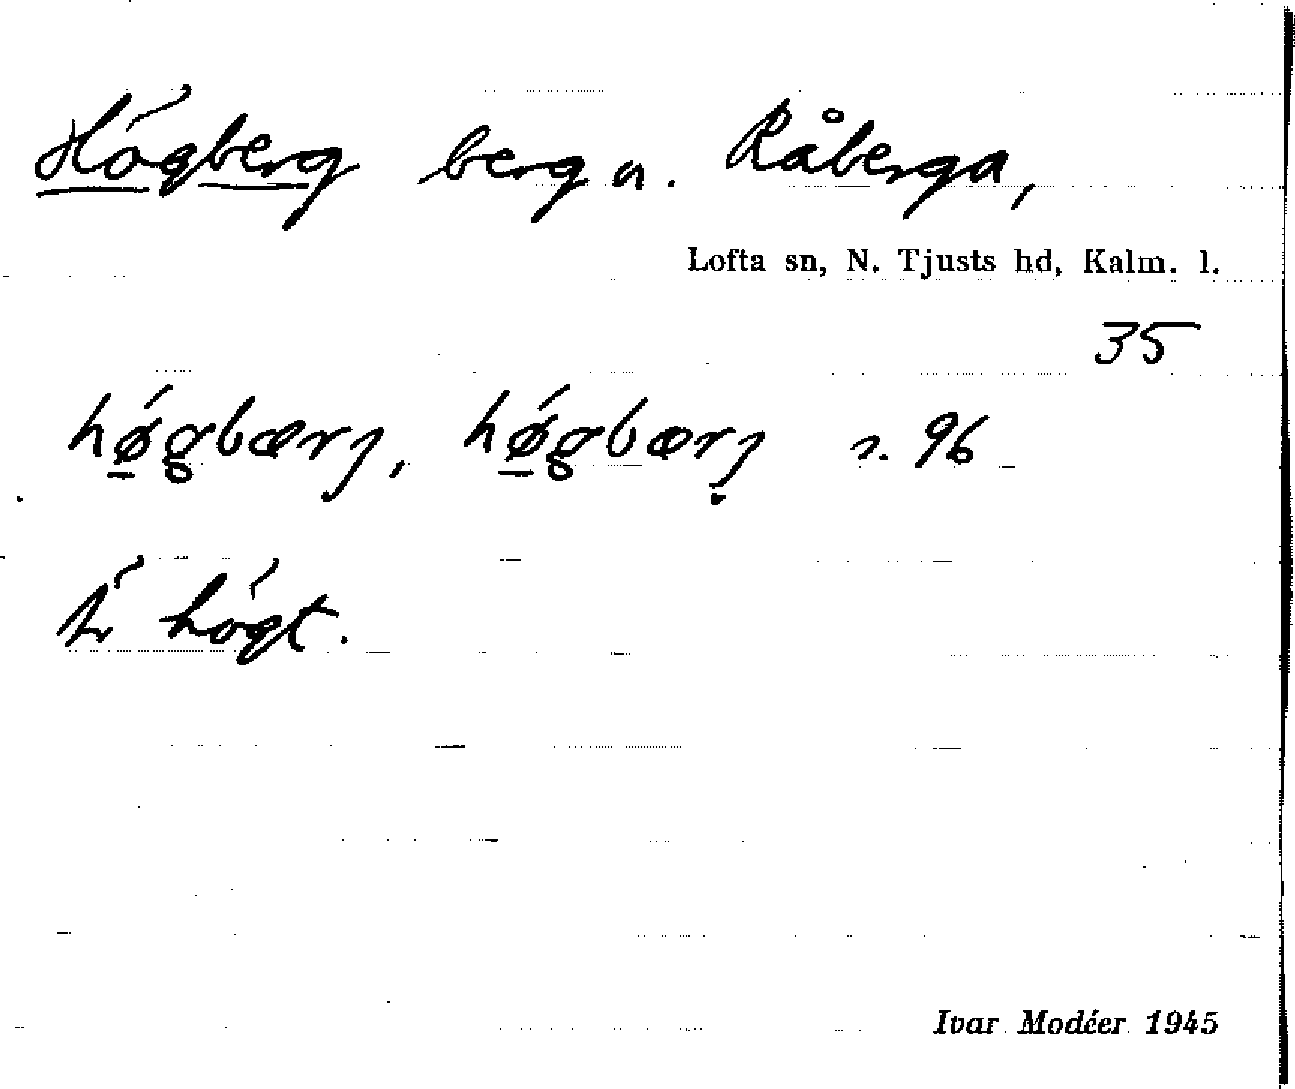 Högberg berg a. Råberga,
Lofta sn, N. Tjusts hd, Kalm. l.
35
hø̱gbærj, hø̱gbærj̣ s. 96
Är högt.
Ivar Modéer 1945